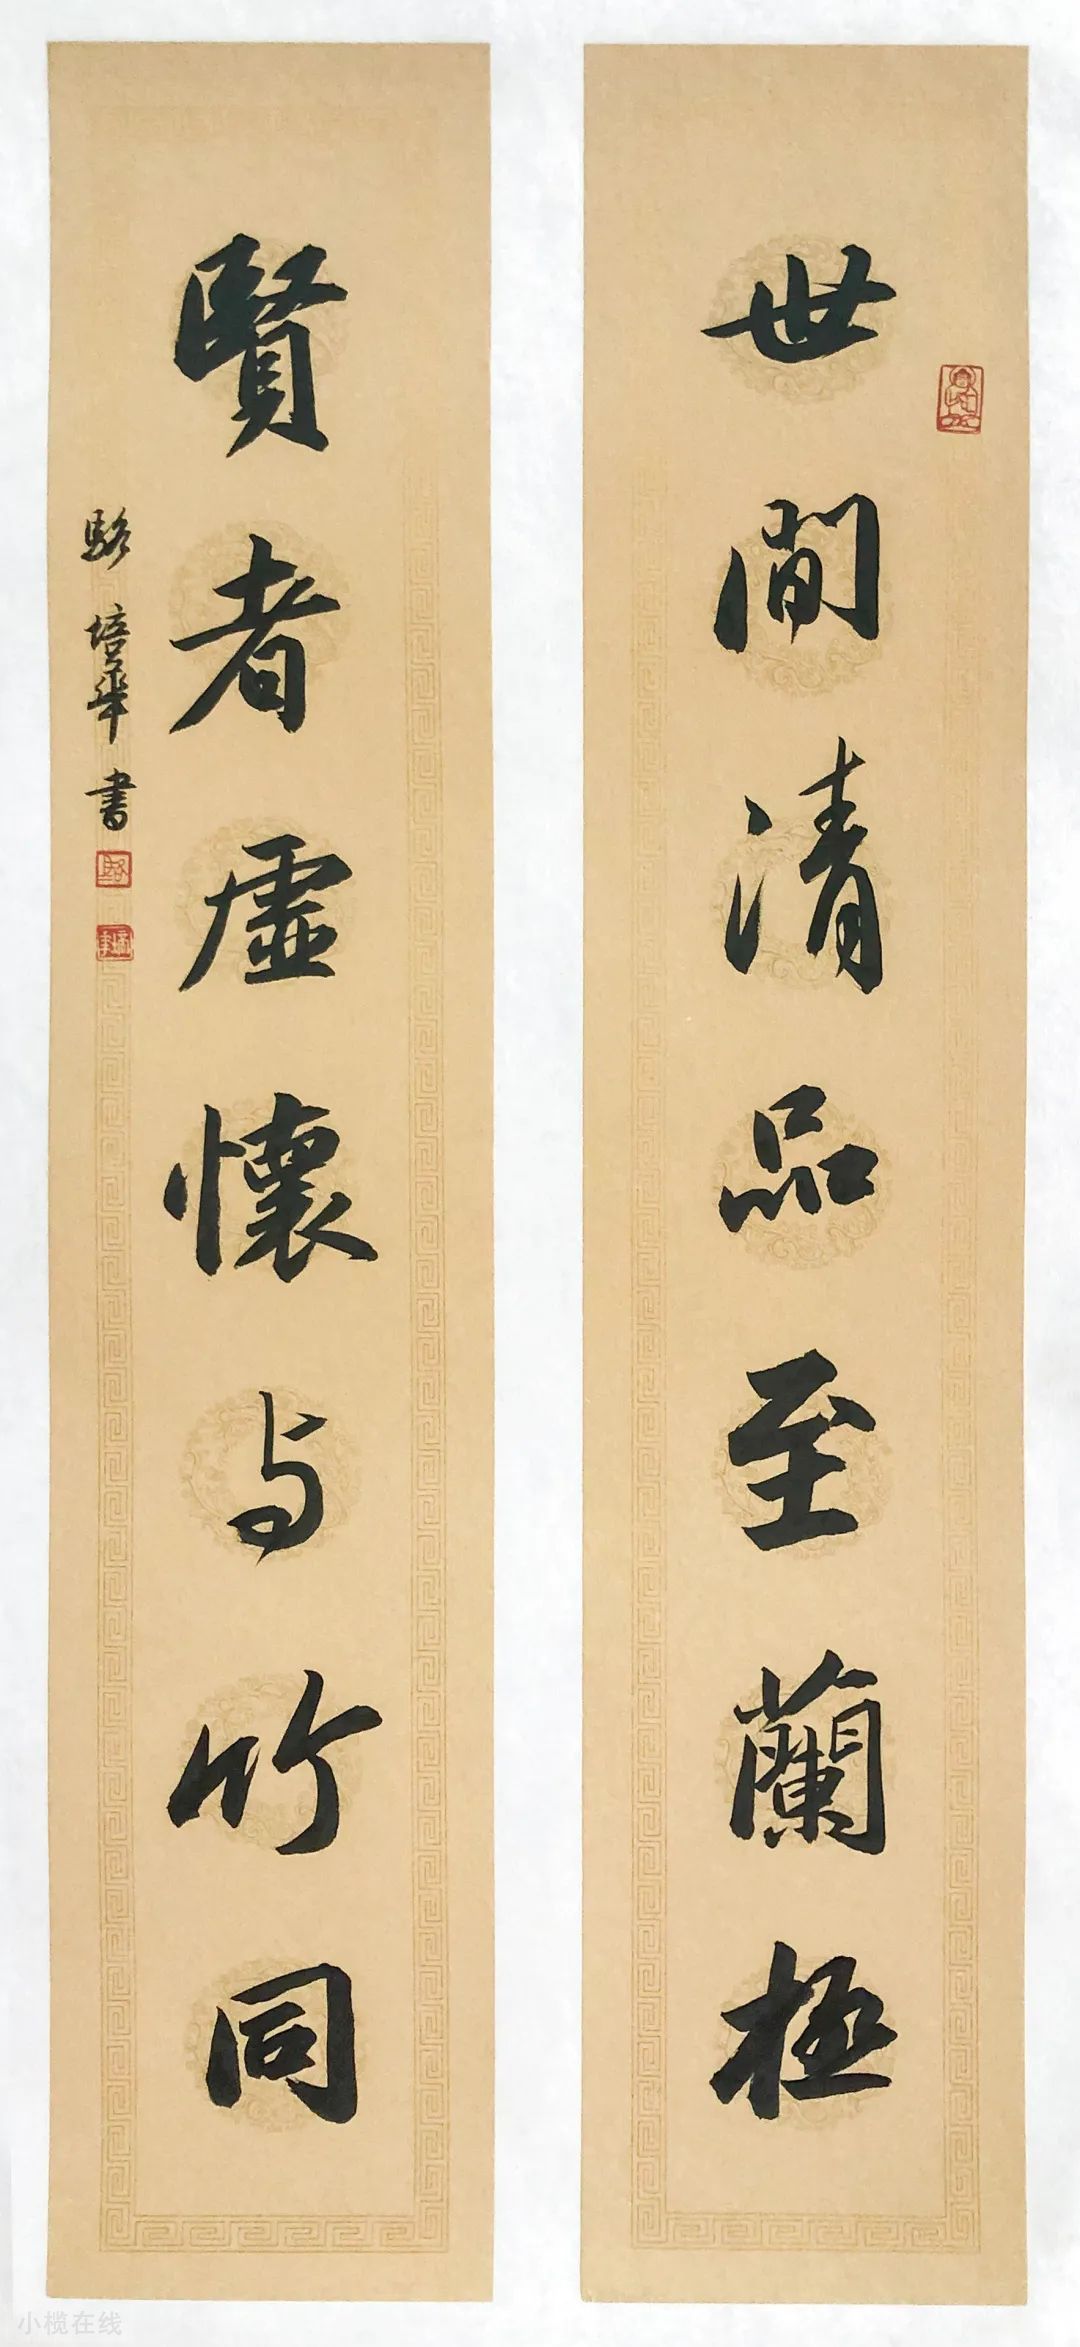 世間清品至蘭極
賢者虛懷与竹同
駱培華書
小榄在线